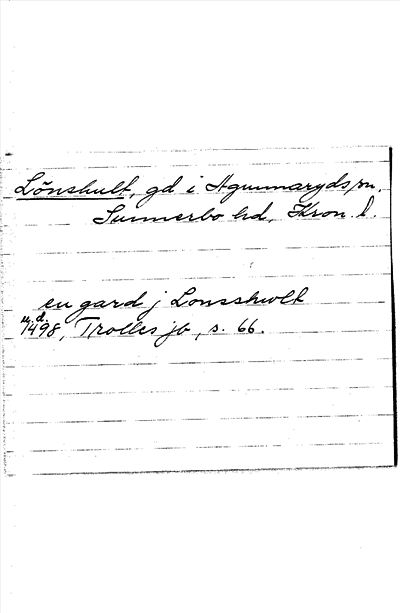 Lönshult, gd i Agunnaryds sn,
Sunnerbo hd, Kron. l.
en gard j Lonsshwlt
u.d.
1498, Trolles jb, s. 66.